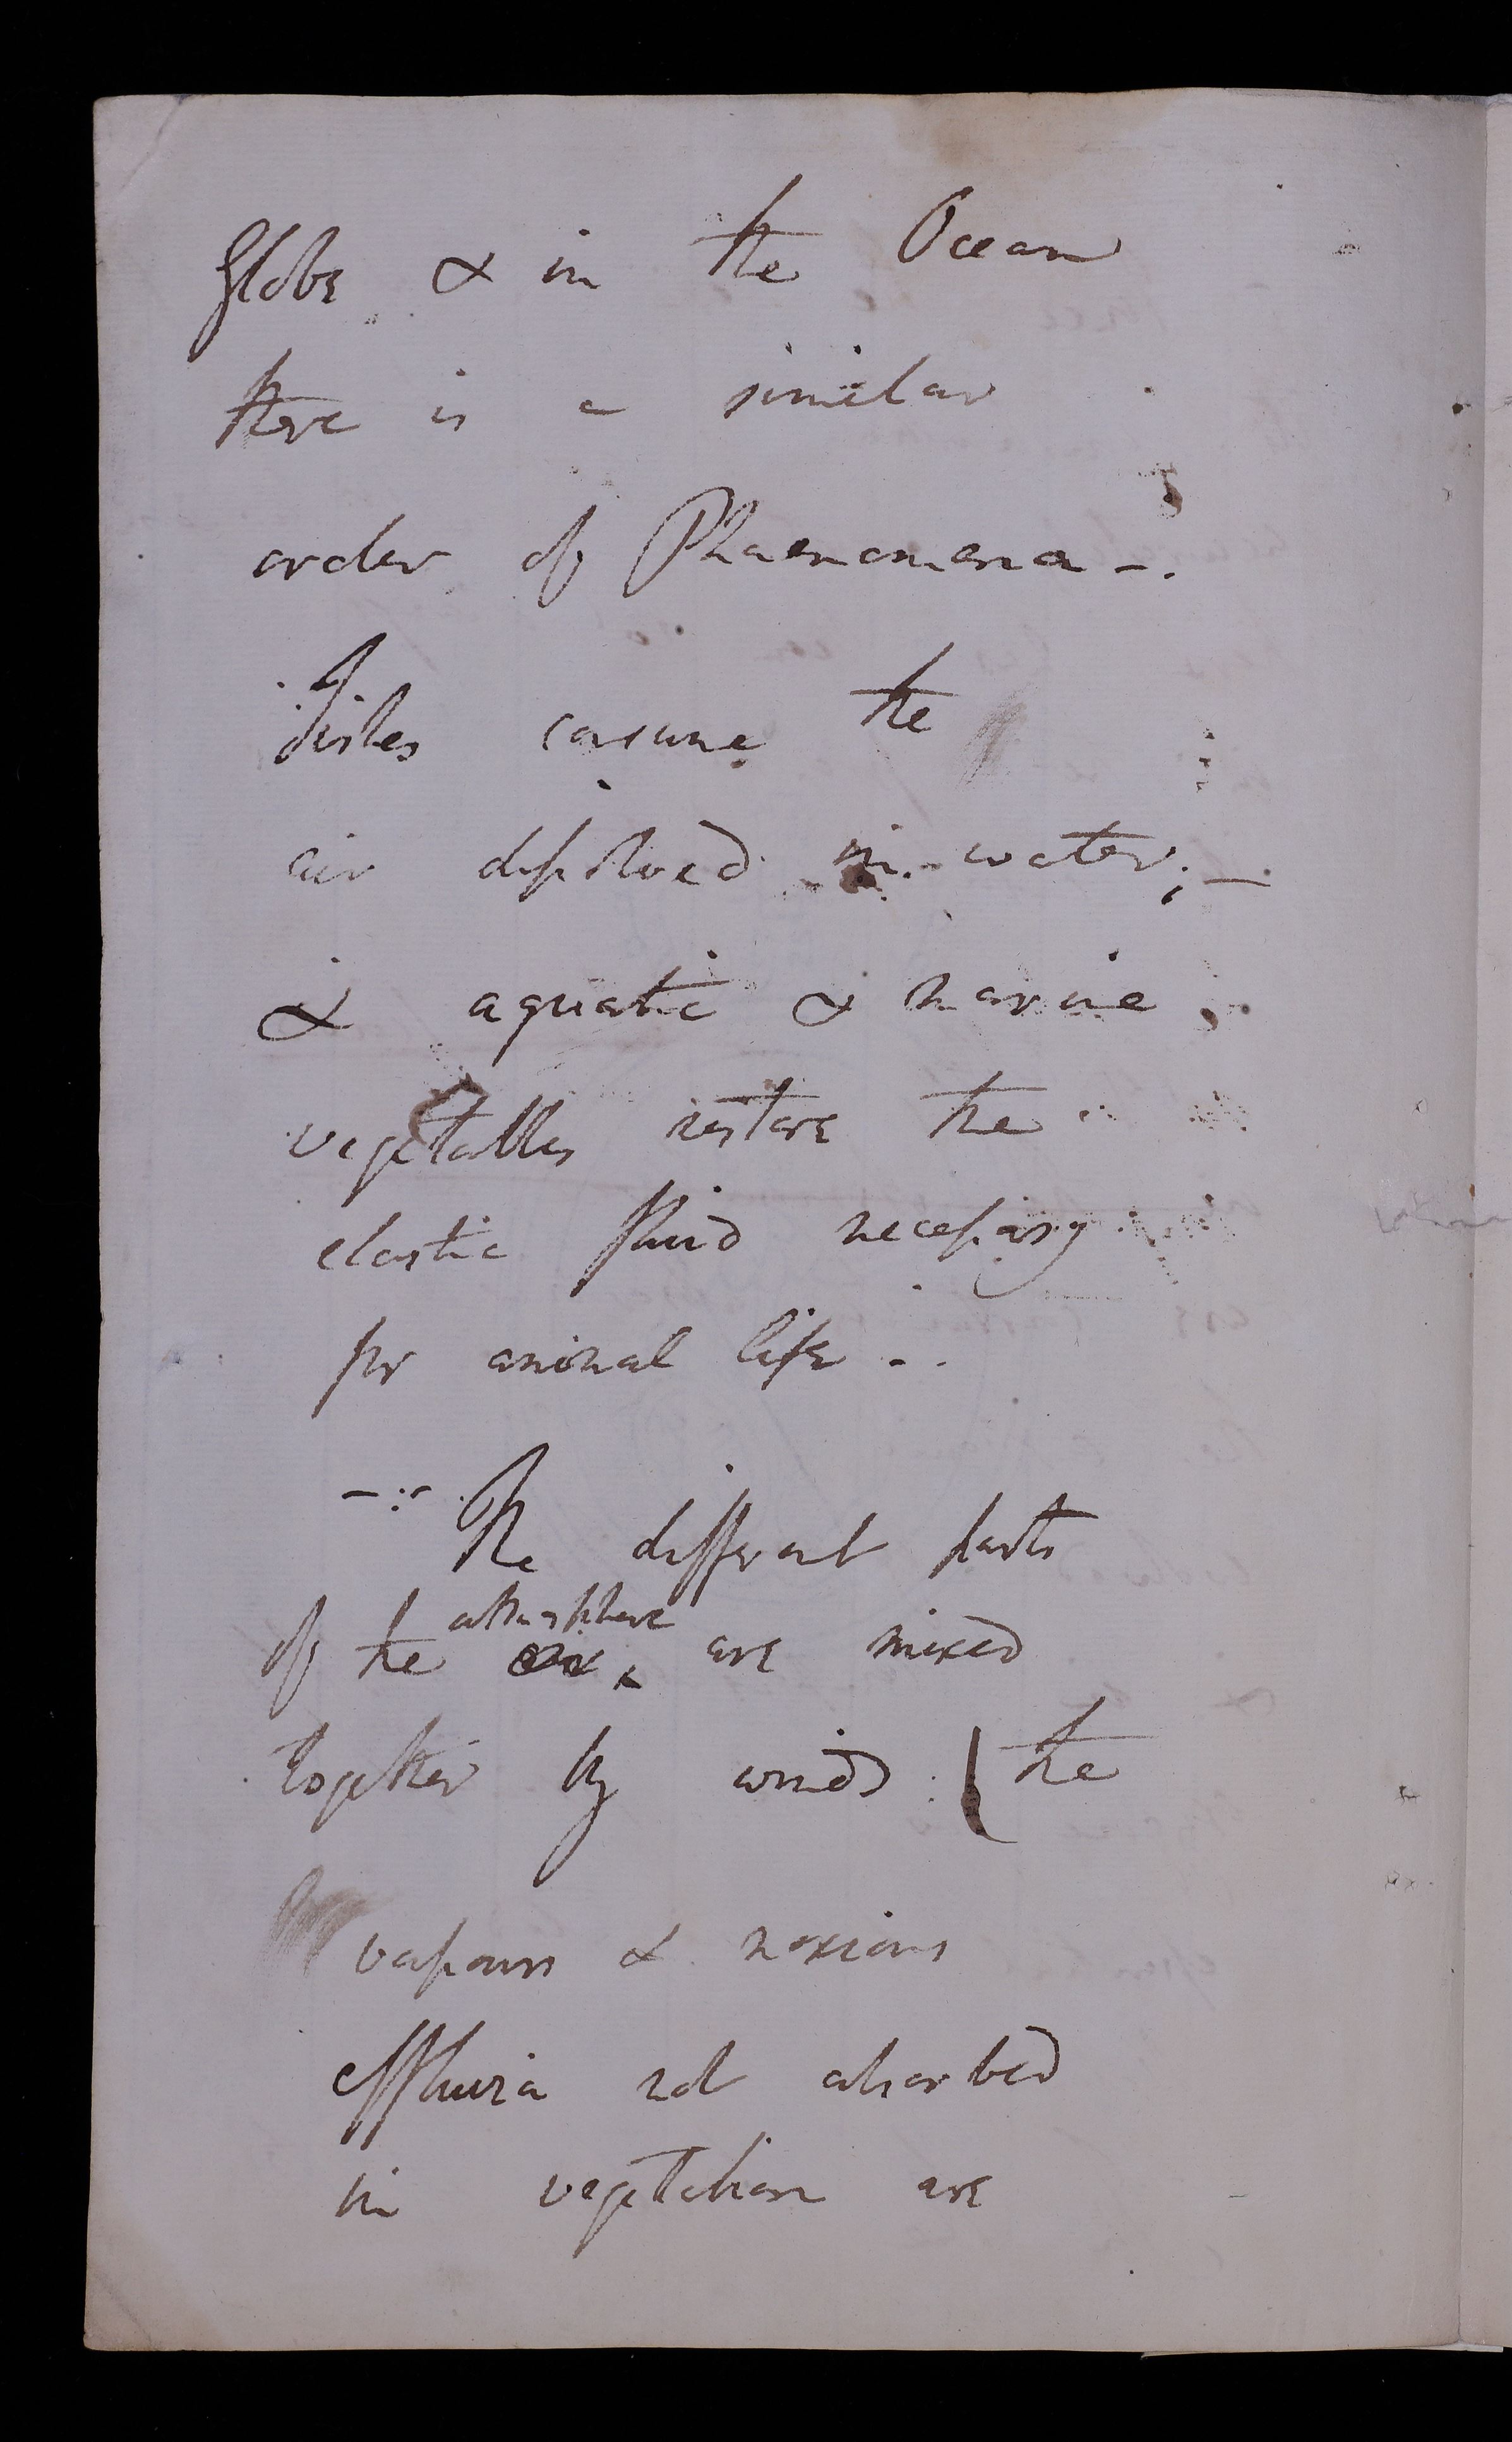 Globe & in the Ocean
there is a similar
order of Phaenomena -.
Fishes consume the
air dissolved in water; -
& aquatic & marine
vegetables restore the
elastic fluid necessary
for animal life - .
- : - The different parts
atmosphere
of the air, are mixed
together by winds : ( the
vapours & noxious
effluvia not absorbed
in vegetation are